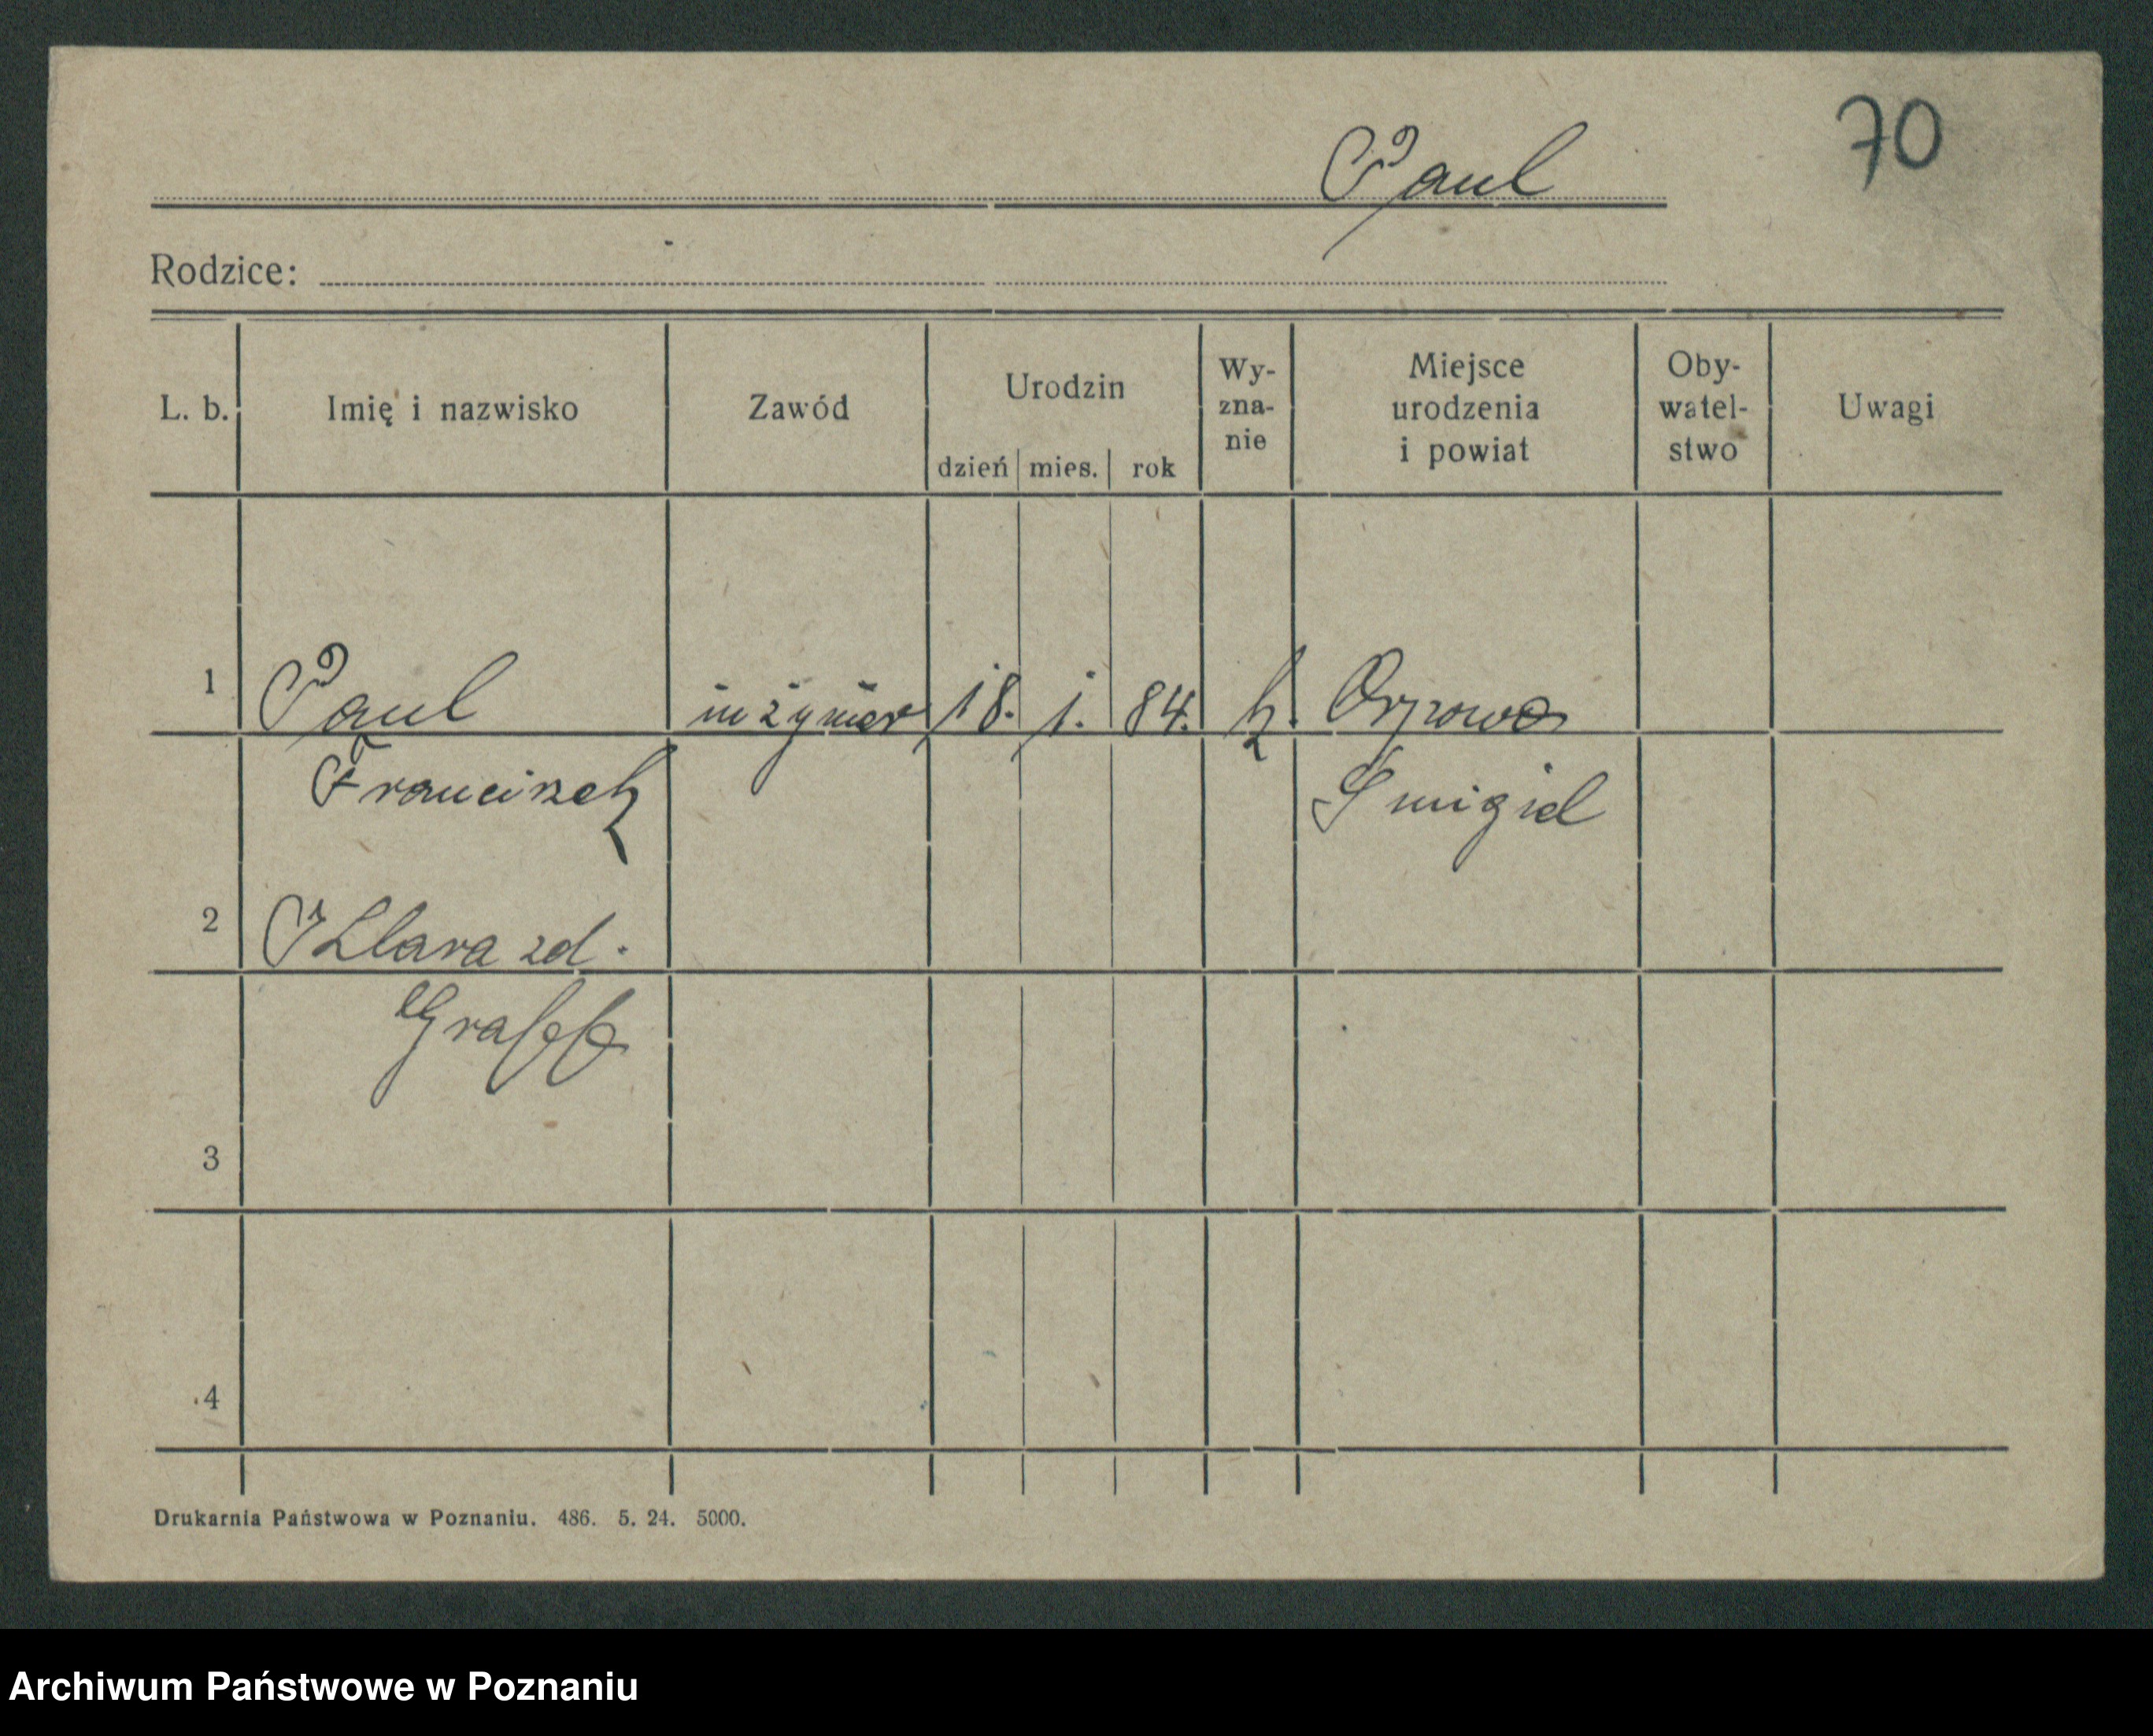 70
Paul
Rodzice:
L. b. Imię i nazwisko Zawód Urodzin dzień mies. rok Wy-zna-nie Miejsce urodzenia i powiat Oby-watel-stwo Uwagi
1 Paul inżynier 18. 1. 84. k.
Franciszek Smigiel
2 Klara zd.
Graff
3
4
Drukarnia Państwowa w Poznaniu. 486. 5. 24. 5000.
Archiwum Państwowe w Poznaniu